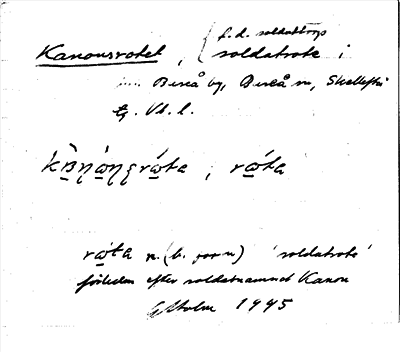 Kanousrotet, { f.d. soldattorp
soldatrote i
Bureå by, Bureå sn, Skellefteå
tg. Vb. l.
rώta
rώta n. (b. form) 'soldatrote'
förleden efter soldatnamnet Kanon
G Holm 1945